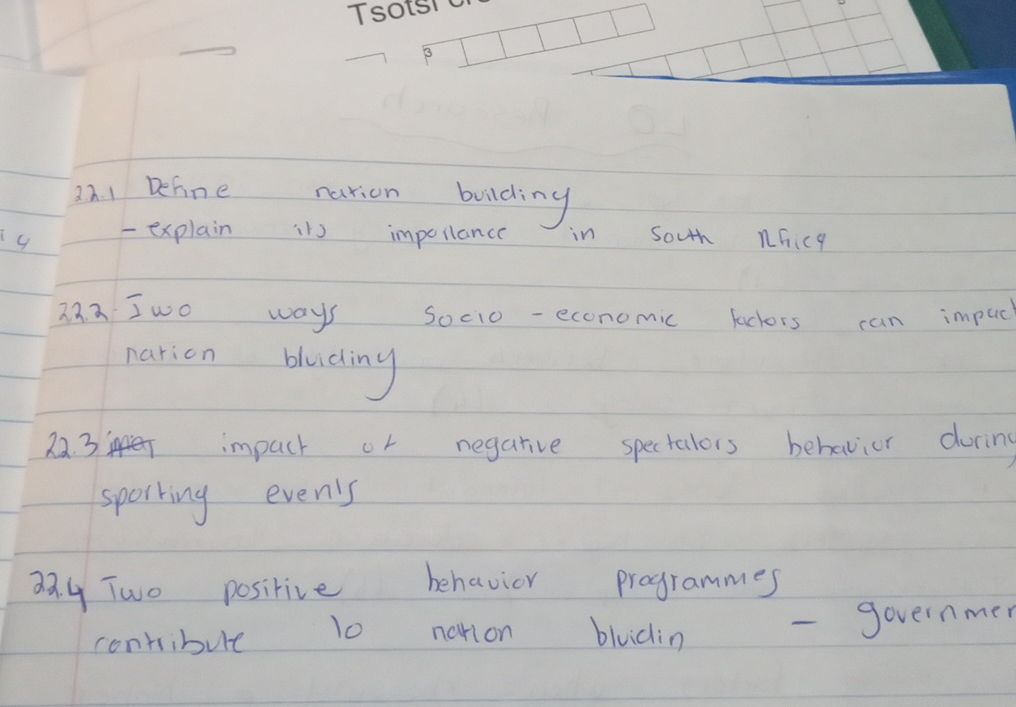 Tsotsi
3
22.1 Define nation building
- explain its importance in South Africa
22.2 Two ways Socio - economic factors can impact
nation bluiding
22.3 impact of negative spectators behavior during
sporting events
22.4 Two positive behavior programmes
contribute to nation bluidin - governmen